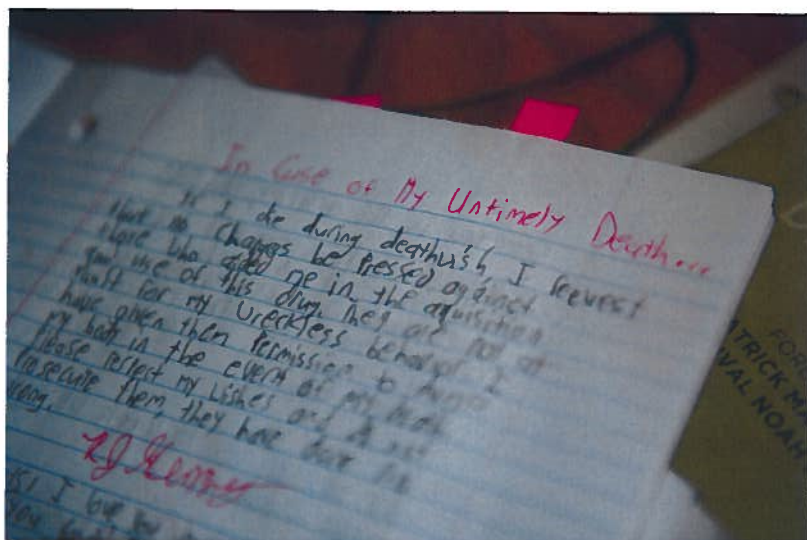 In Case of My Untimely Death...
If I die during deathwish, I request
that no charges be pressed against
those who aided me in the aquisition
and use of this drug. They are not at
fault for my wreckless behavior. I
have given them permission to
my body in the event of my death.
Please respect my wishes and do not
prosecute them, they have done no
wrong.
I
you
FOR
ATRICK M
VAL NOAH